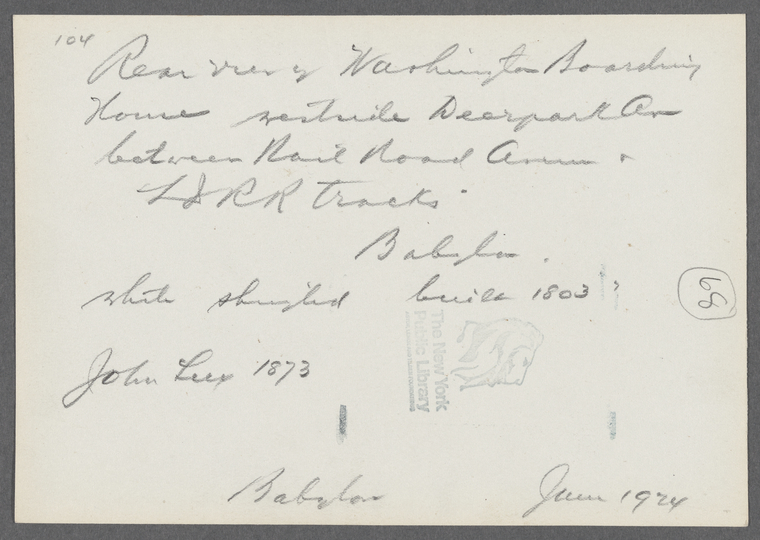 104
Rear view of Washington Boarding
House westside Deerpark Av
between Rail Road Avenue &
L I R R tracks
Babylon.
white shingled built 1803?
68
The New York
Public Library
John Lux 1873
Babylon June 1924